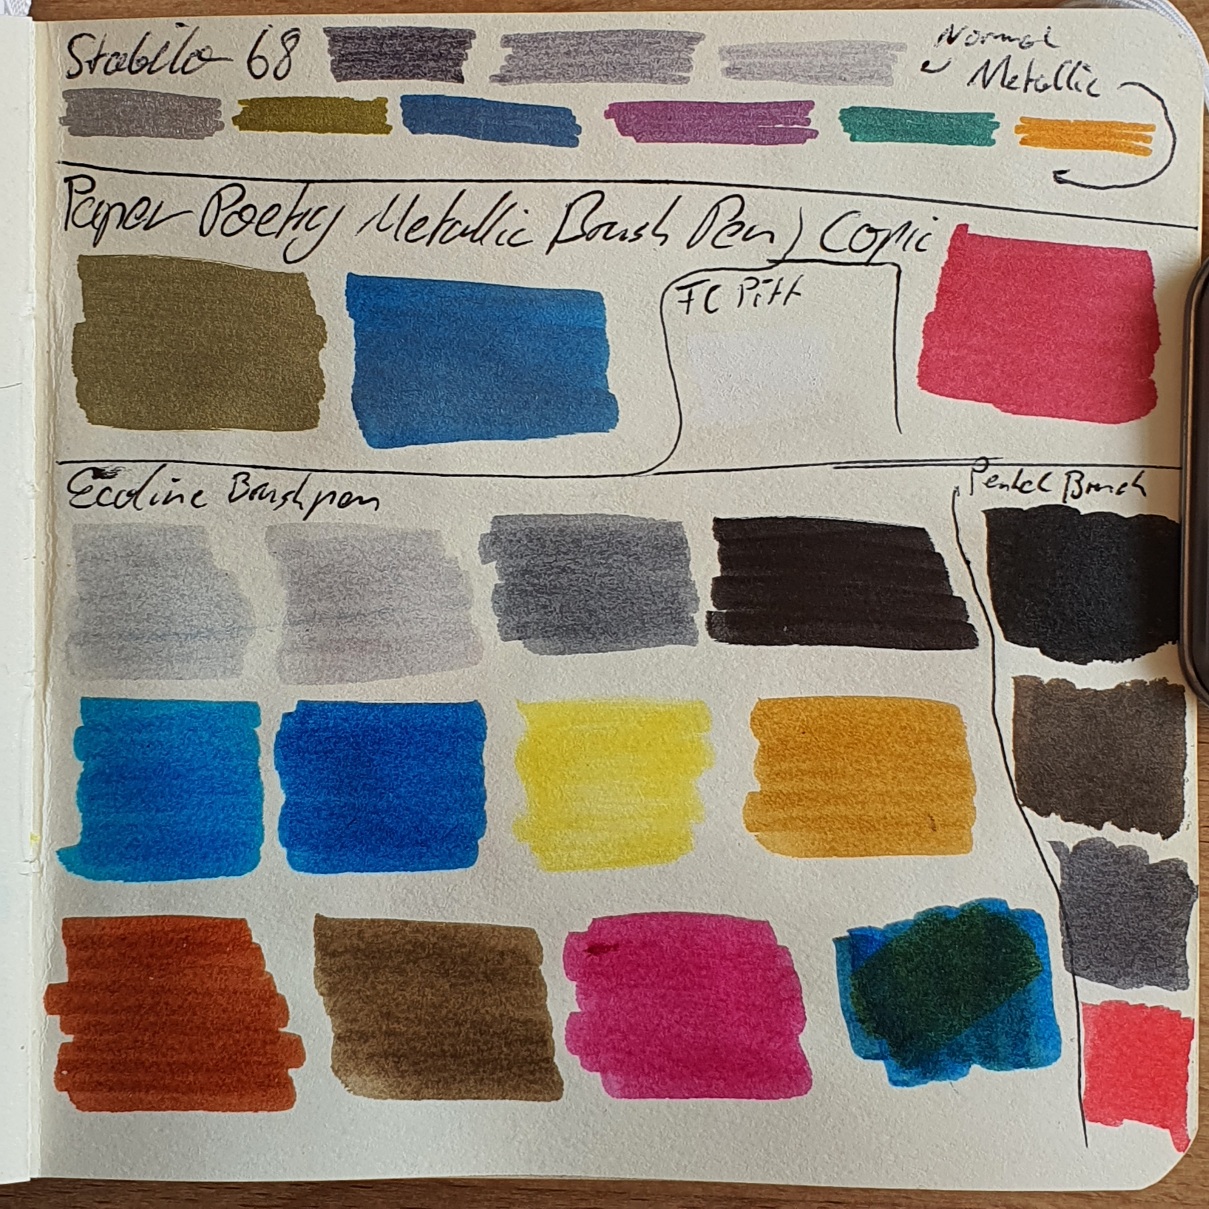 Stabilo 68
Normal
Metallic
Paper Poetry Metallic Brush Pen ) Copic
FC Pitt
Ecoline Brushpen
Pentel Brush